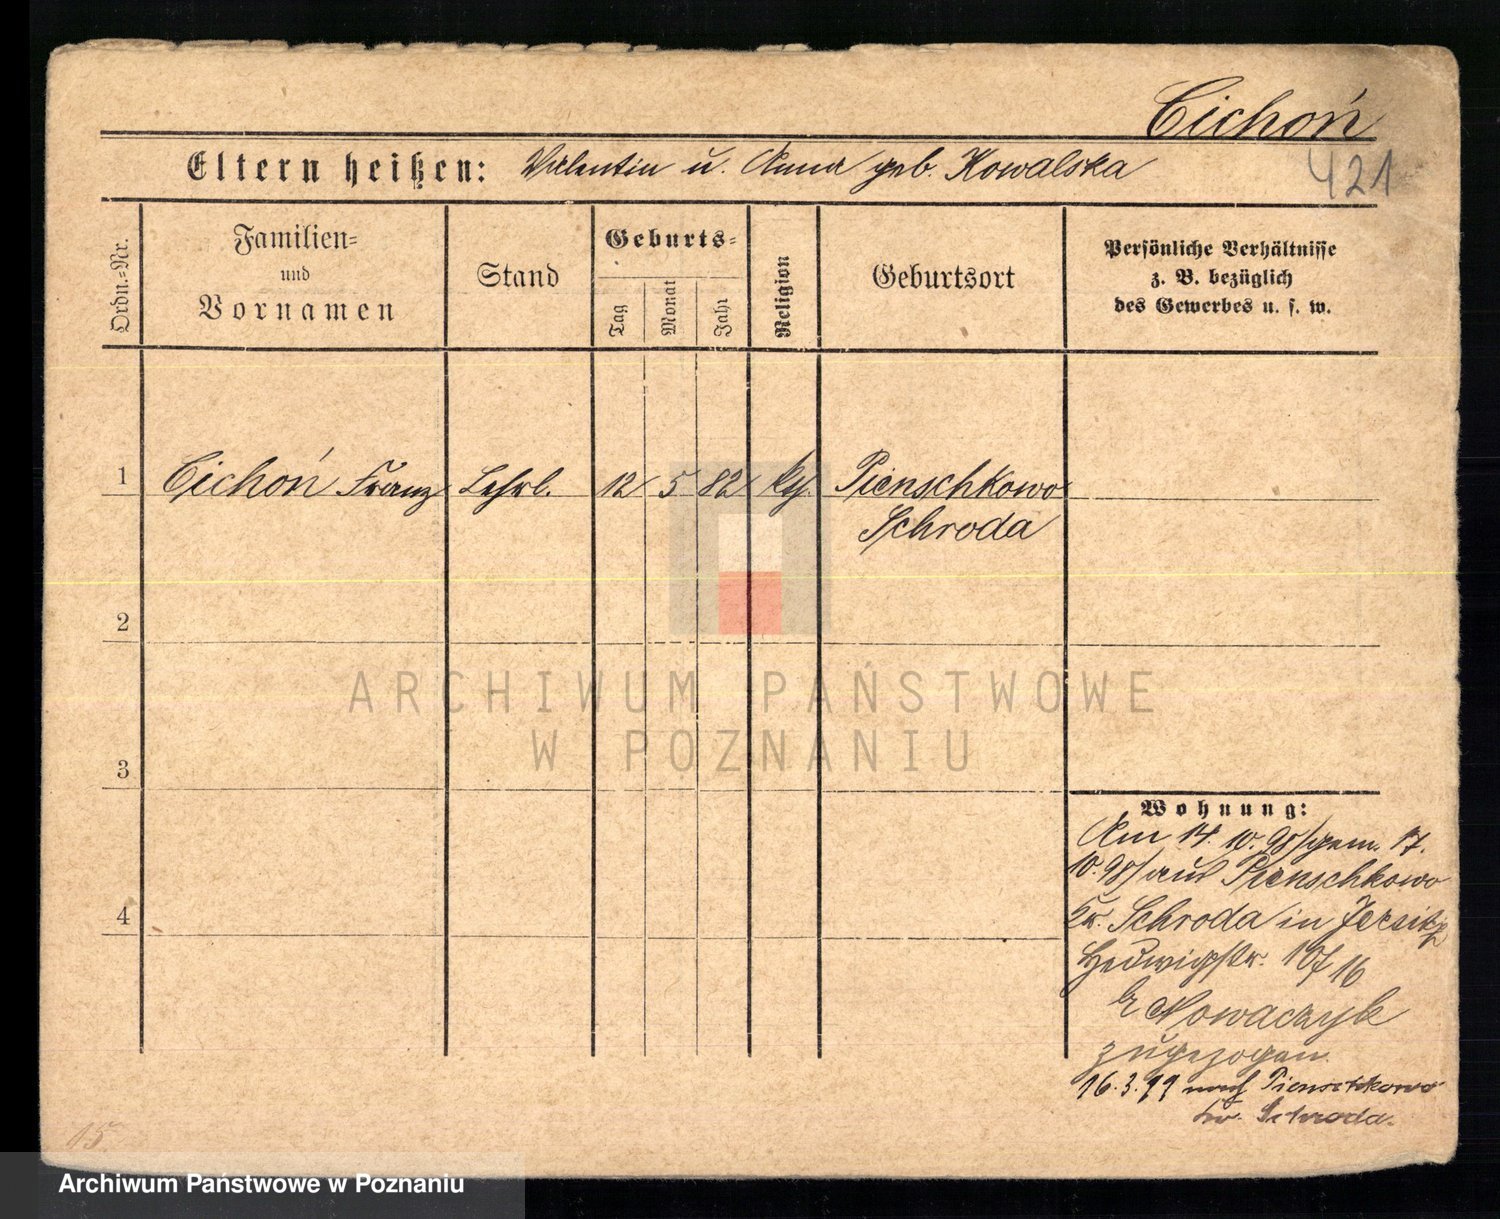 Cichoń
421
Eltern heißen: Valentin u. Anna geb. Kowalska
Ordn.-Nr.
Familien-
und
Vornamen
Stand
Geburts-
Tag
Monat
Jahr
Religion
Geburtsort
Persönliche Verhältnisse
z. B. bezüglich
des Gewerbes u. s. w.
1 Cichoń Franz Lehrl. 12 5 82 kth. Pienschkowo
Schroda
2
3
4
Wohnung:
Am 14. 10. 98/gem. 17.
10. 98/ aus Pienschkowo
Kr. Schroda in Jersitz
Hedwigstr. 16
b/ Nowaczyk
zugezogen.
16.3.99 nach Pienschkowo
Kr. Schroda.
15
ARCHIWUM PAŃSTWOWE
W POZNANIU
Archiwum Państwowe w Poznaniu